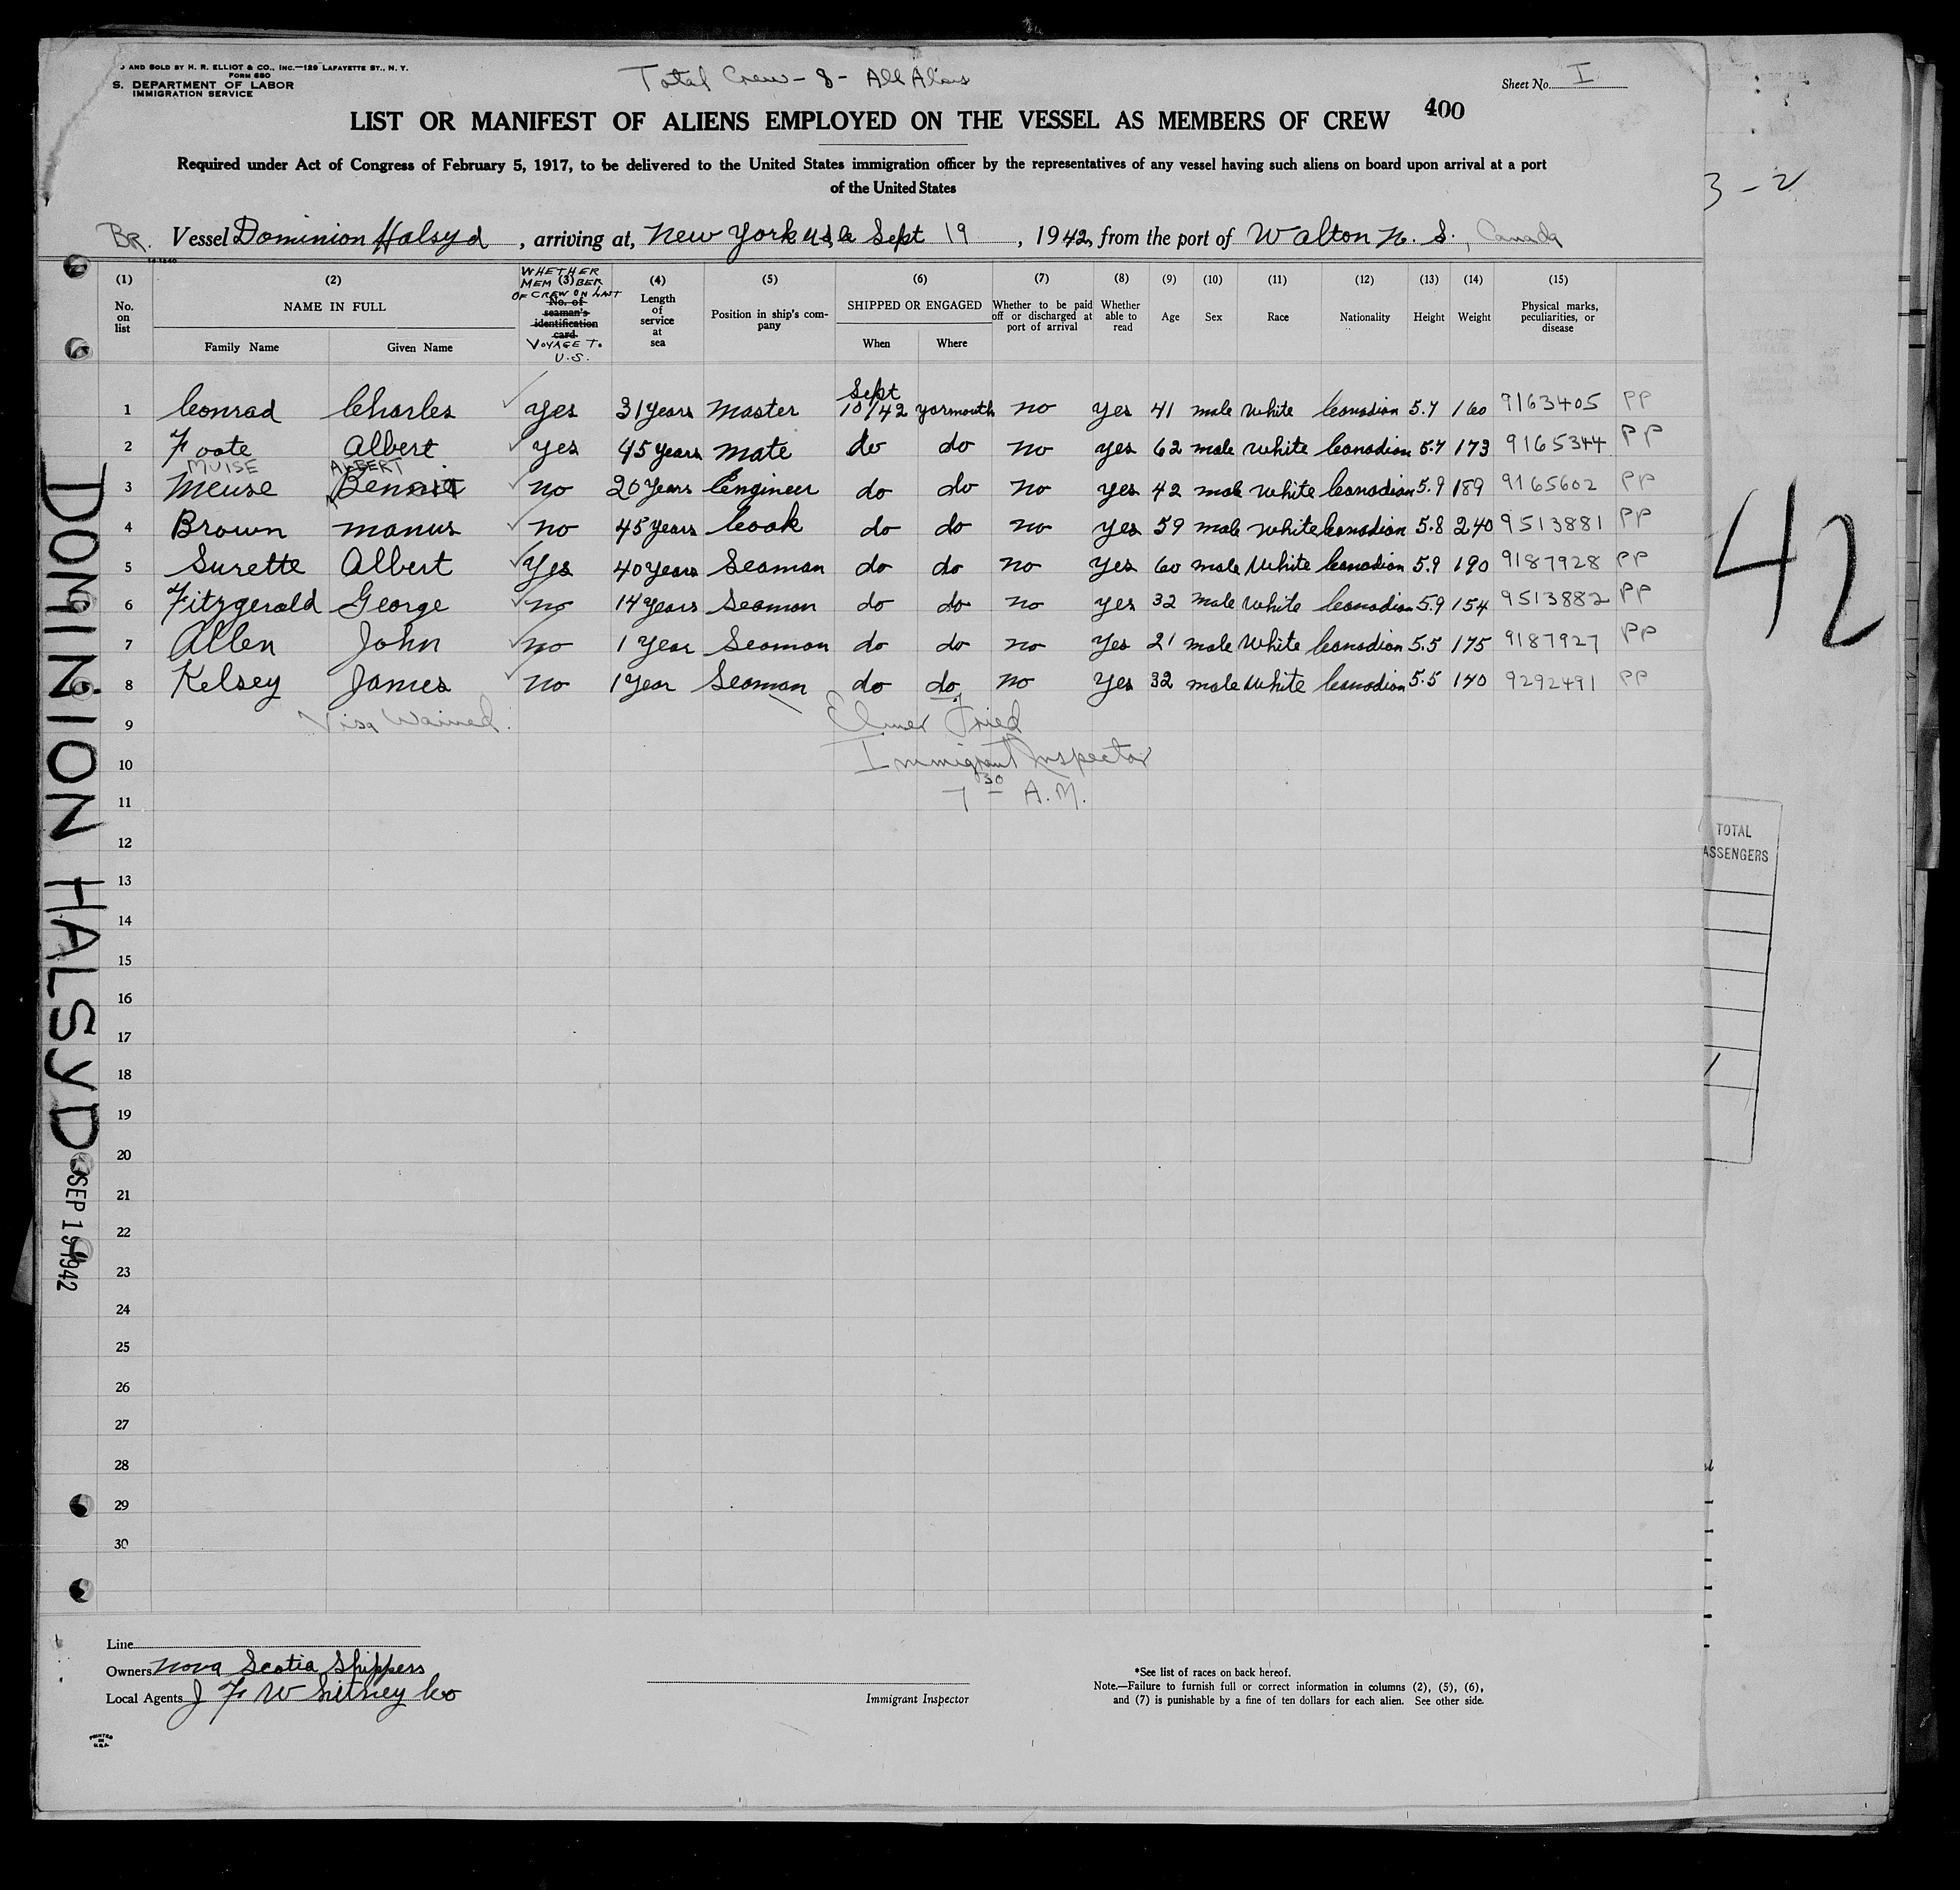 D AND SOLD BY H. R. ELLIOT & CO., INC.—129 LAFAYETTE ST., N. Y.
FORM 680
S. DEPARTMENT OF LABOR
IMMIGRATION SERVICE
Total Crew - 8 - All Aliens
Sheet No. I
LIST OR MANIFEST OF ALIENS EMPLOYED ON THE VESSEL AS MEMBERS OF CREW 400
Required under Act of Congress of February 5, 1917, to be delivered to the United States immigration officer by the representatives of any vessel having such aliens on board upon arrival at a port
of the United States
3 - 2
Br. Vessel Dominion Halsyd, arriving at, New York USA Sept 19, 1942, from the port of Walton N. S., Canada
(1) (2) (3) (4) (5) (6) (7) (8) (9) (10) (11) (12) (13) (14) (15)
No. on list
NAME IN FULL
Family Name Given Name
WHETHER MEMBER OF CREW ON LAST VOYAGE TO U.S.
No. of seaman's identification card
Length of service at sea
Position in ship's company
SHIPPED OR ENGAGED
When Where
Whether to be paid off or discharged at port of arrival
Whether able to read
Age Sex Race Nationality Height Weight
Physical marks, peculiarities, or disease
1 Conrad Charles yes 31 years Master Sept 10/42 Yarmouth no yes 41 male White Canadian 5.7 160 9163405 PP
2 Foote Albert yes 45 years Mate do do no yes 62 male White Canadian 5.7 173 9165344 PP
MUISE ALBERT
3 Meuse Bennie no 20 years Engineer do do no yes 42 male White Canadian 5.9 189 9165602 PP
4 Brown Manus no 45 years Cook do do no yes 59 male White Canadian 5.8 240 9513881 PP
5 Surette Albert yes 40 years Seaman do do no yes 60 male White Canadian 5.9 190 9187928 PP
6 Fitzgerald George no 14 years Seaman do do no yes 32 male White Canadian 5.9 154 9513882 PP
7 Allen John no 1 year Seaman do do no yes 21 male White Canadian 5.5 175 9187927 PP
8 Kelsey James no 1 year Seaman do do no yes 32 male White Canadian 5.5 140 9292491 PP
9 Visa Waived. Elmer Fried
10 Immigrant Inspector
11 7 30 A.M.
12
13
14
15
16
17
18
19
20
21
22
23
24
25
26
27
28
29
30
DOMINION HALSYD
SEP 19 1942
42
TOTAL
ASSENGERS
Line
Owners Nova Scotia Shippers
Local Agents J F Whitney Co
Immigrant Inspector
*See list of races on back hereof.
Note.—Failure to furnish full or correct information in columns (2), (5), (6),
and (7) is punishable by a fine of ten dollars for each alien. See other side.
PRINTED
IN
U.S.A.